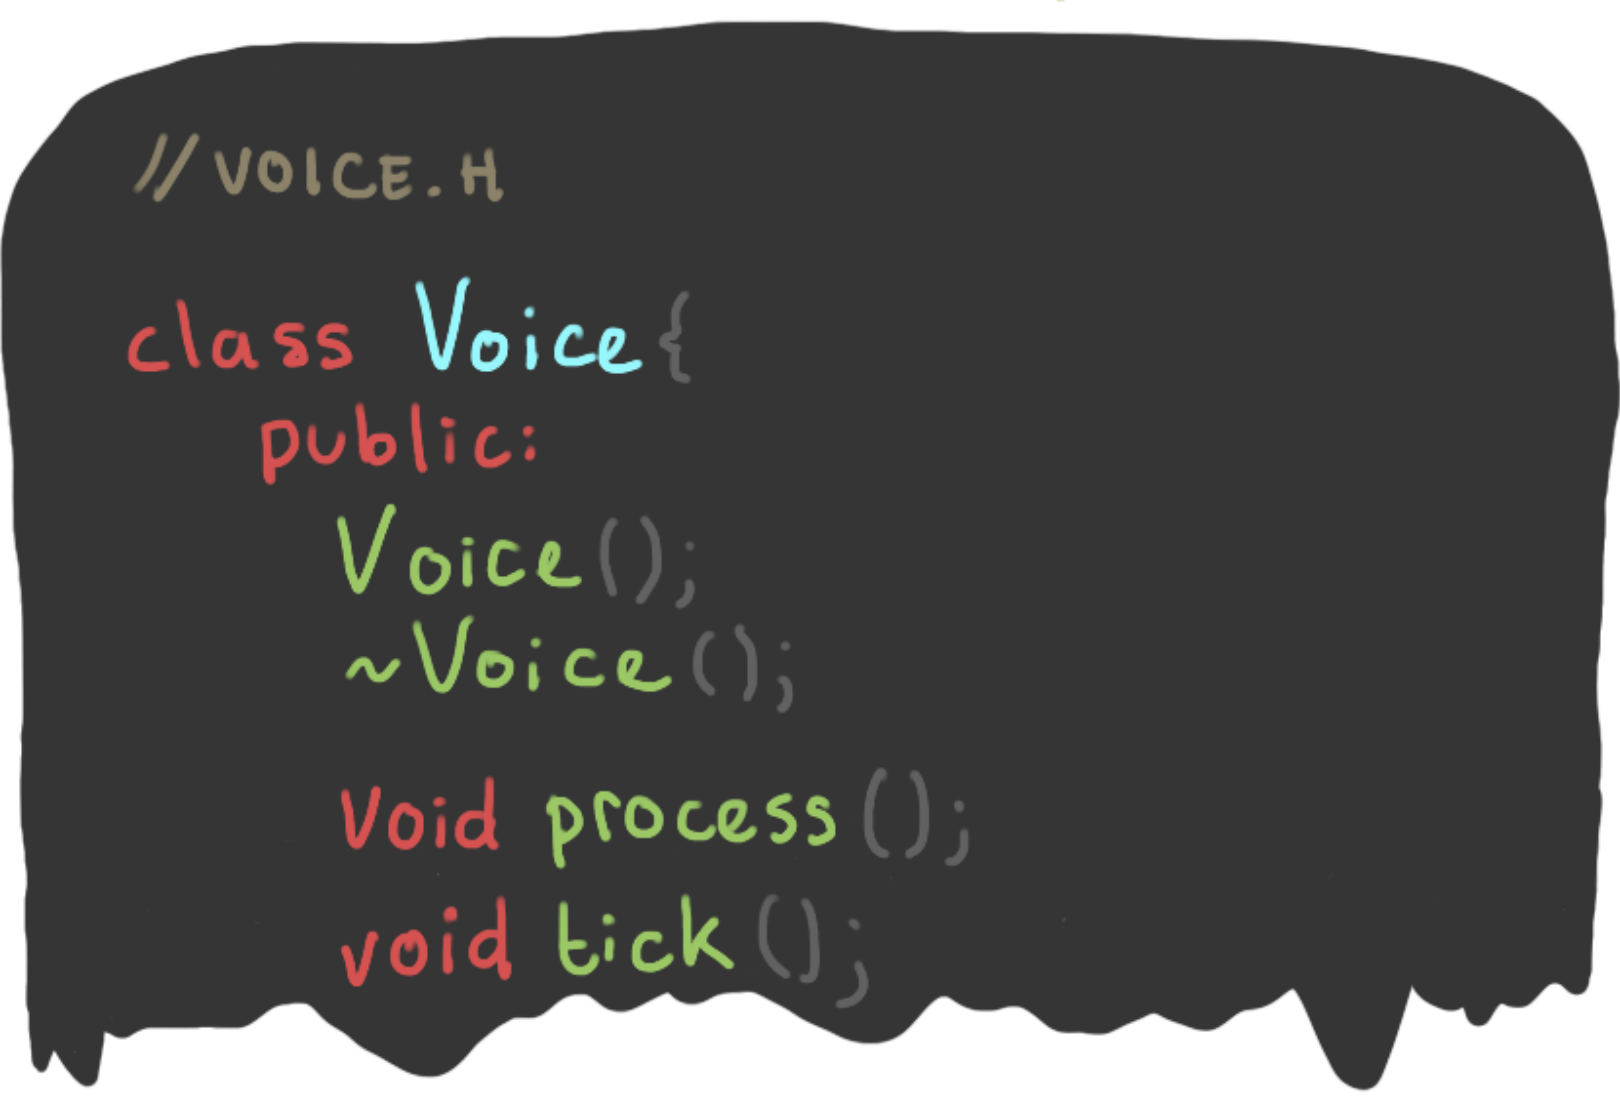 //VOICE.H
class Voice{
public:
Voice();
~Voice();
void process();
void tick();